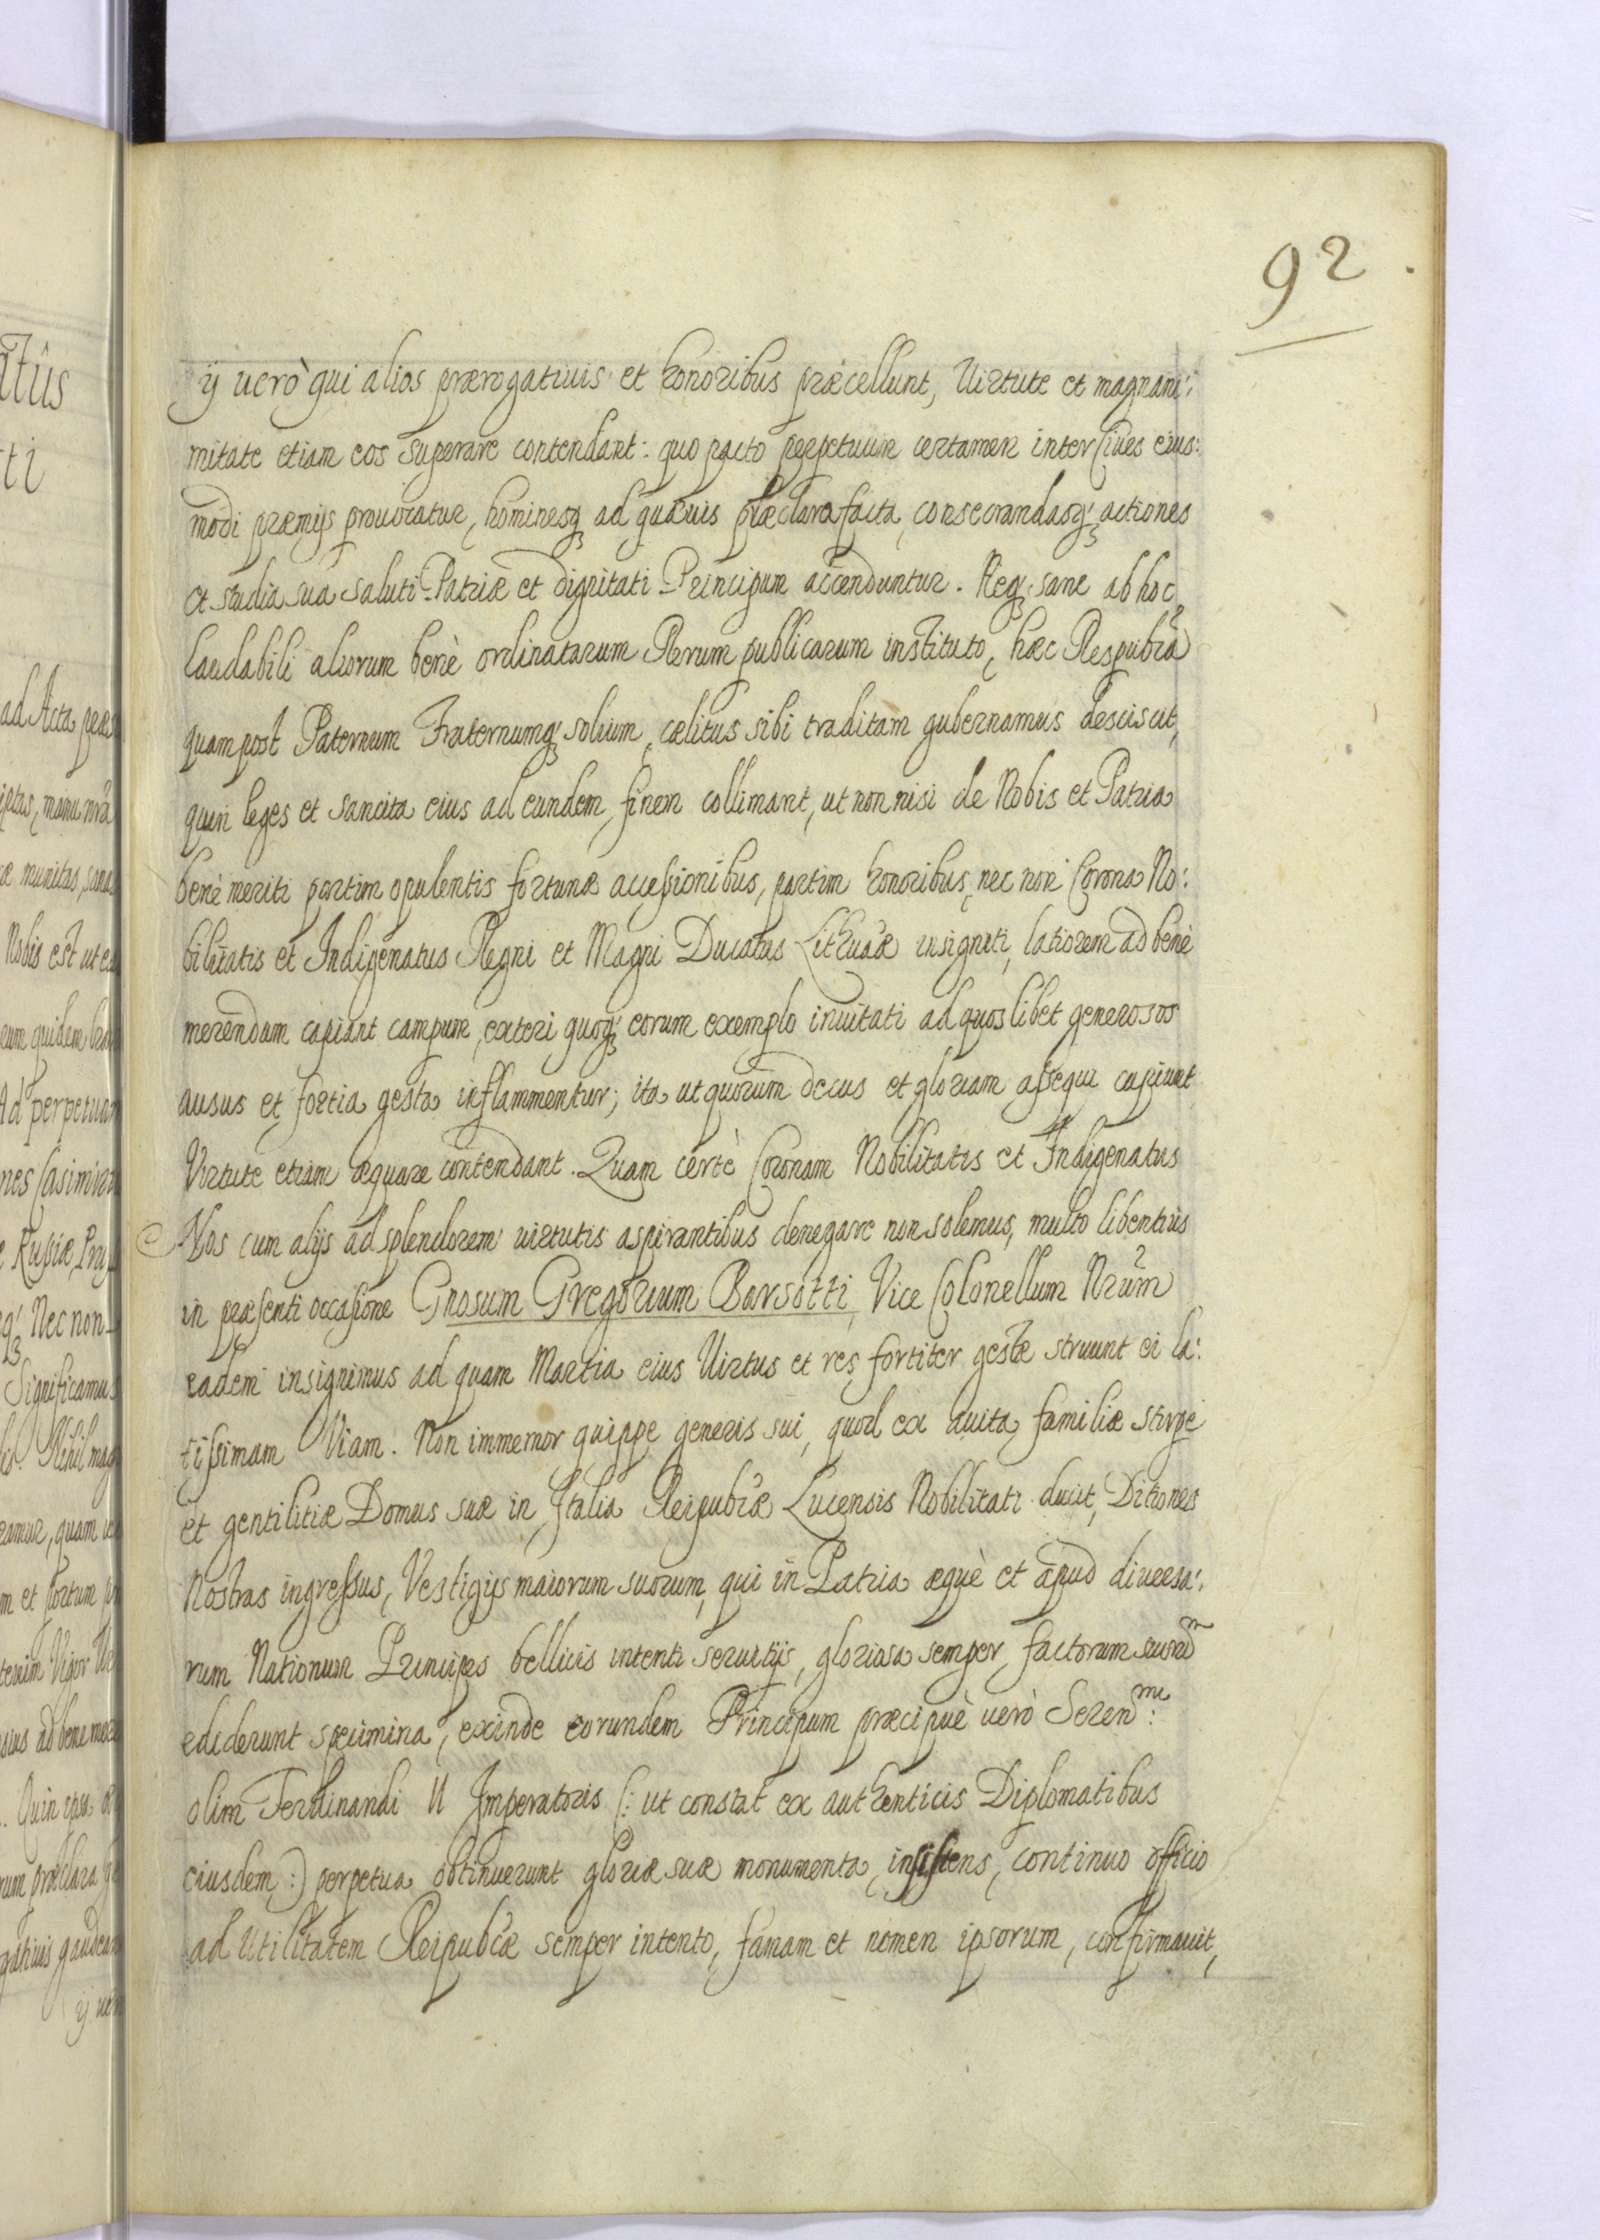 92.
ij uerò qui alios prærogatiuis et honoribus præcellunt, Uirtute et magnani:
mitate etiam eos superare contendant: quo pacto perpetuum certamen inter Ciues eius:
modi præmijs prouocatur, hominesq; ad quæuis præclara facta, consecrandasq; actiones
et studia sua saluti Patriæ et dignitati Principum accenduntur. Neq; sane ab hoc
laudabili aliorum benè ordinatarum Rerum publicarum instituto, hæc Respublca
quam post Paternum Fraternumq; solium, cælitus sibi traditam gubernamus desciscit,
quin leges et sancita eius ad eundem finem collimant, ut non nisi de Nobis et Patria
benè meriti partim opulentis fortunæ accessionibus, partim honoribus, nec non Corona No:
bilitatis et Indigenatus Regni et Magni Ducatus Lithuãæ insigniti, latiorem ad benè
merendum capiant campum, exteri quoq; eorum exemplo inuitati ad quos libet generosos
ausus et fortia gesta inflammentur; ita ut quorum decus et gloriam assequi cupiunt
Virtute etiam æquare contendant. Quam certè Coronam Nobilitatis et Indigenatus
Nos cum alijs ad splendorem uirtutis aspirantibus denegare non solemus, multo libentius
in præsenti occasione Gnosum Gregorium Barsotti, Vice Colonellum Nrum
eadem insignimus ad quam Martia eius Uirtus et res fortiter gestæ struunt ei la:
tissimam Viam. Non immemor quippe generis sui, quod ex auita familiæ stirpe
et gentilitiæ Domus suæ in Italia Reipublcæ Lucensis Nobilitati ducit, Ditiones
Nostras ingressus, Vestigijs maiorum suorum, qui in Patria æquè et apud diuersa:
rum Nationum Principes bellicis intenti seruitijs, gloriosa semper factorum suorũm
ediderunt specimina, exinde eorundem Principum præcipuè uerò Seren:mi
olim Ferdinandi II Imperatoris (: ut constat ex authenticis Diplomatibus
eiusdem :) perpetua obtinuerunt gloriæ suæ monumenta, insistens, continuo officio
ad Utilitatem Reipublcæ semper intento, famam et nomen ipsorum, confirmauit,